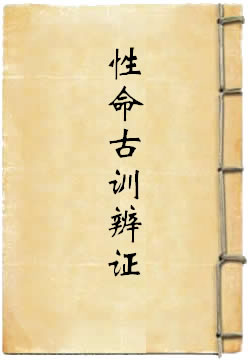 性命古训辨证